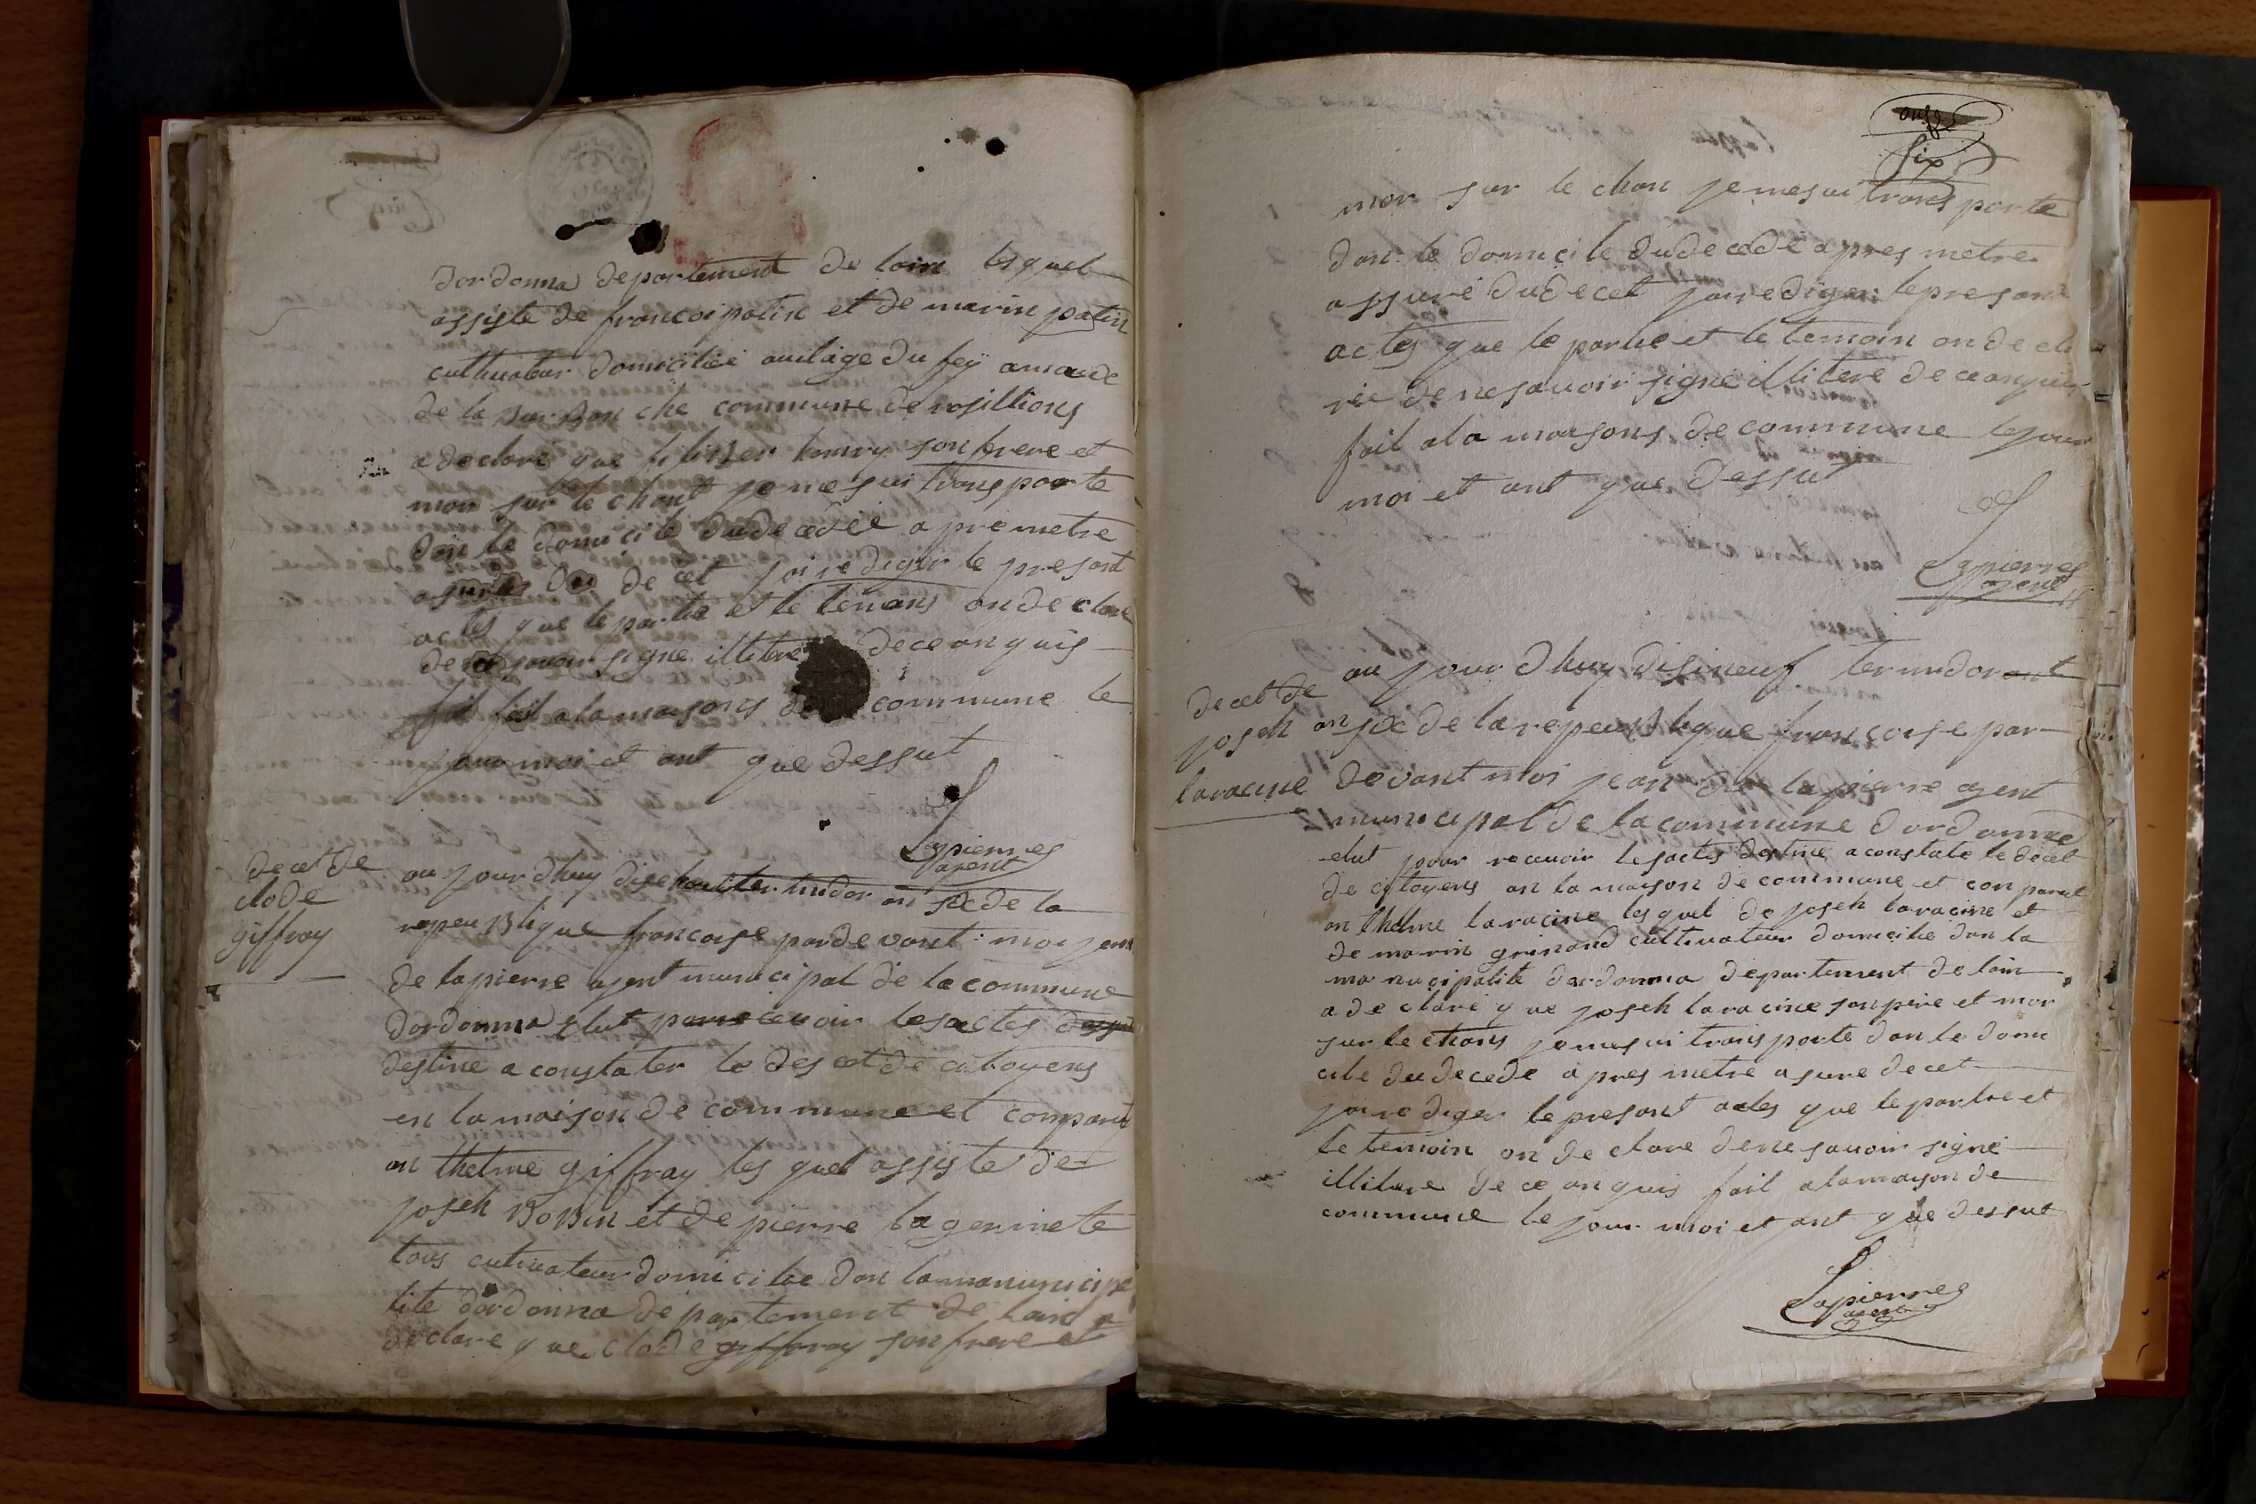 dordonna departement de loin lesquel
assiste de francoi patin et de marin patin
cultivateur domicilié auilage du feÿ
de la commune de rosillions
a declaré que henry son frere et
mor sur le chant je me sui transporte
don le domicile dudecedee apre metre
de cet joi rediger le presont
actes que le partie et le temons on declare
savoir signe illitere de ce anquis
fait a la maisons de commune le
jour moi et ant que dessut
Lapierre
agent
decet de
clode
giffray
au jour dhuy disehuit termidor an sixe de la
repeublique francoise par de vant moi jean
de lapierre agent municipal de la commune
dordonna elut pour recevoir les actes
destine a constater le descet de citoyens
en la maison de commune et comparut
an thelme giffray les quel assiste de
joseh bobin et de pierre lagerinete
tous cultivateur domicilie dan la manunicipa
lite dordonna departement de loin a
declare que clode giffray son frere et
onze
six
mor sur le chan je me sui transporte
dan le domicile dudecede apres metre
assuré dudecet joi rediger le presant
actes que le partie et le temoin on decla
ré de ne savoir signé illitere de ce anquis
fait ala maisons de commune le jour
moi et ant que dessut
Lapierre
agent
decet de
joseh
laracine
au jour dhuy disineuf termidor
an sixe de la repeublique françoise par
devant moi jean de lapierre agent
municipal de la commune dordonna
elut pour recevoir les actes destine a constate le decet
de citoyens an la maison de commune et conparut
an thelme laracine les quel de joseh laracine et
de marin grinand cultivateur domicilie dan la
manucipalité dordonna departement de loin
a declaré que joseh laracine son pere et mor
sur le chans je me sui transporte dan le domi
cile du decede apres metre asure decet
joi rediger le presont actes que le partie et
le temoin on declare de ne savoir signé
illitere de ce anquis fait ala maison de
commune le jour moi et ant que dessut
Lapierre
agent